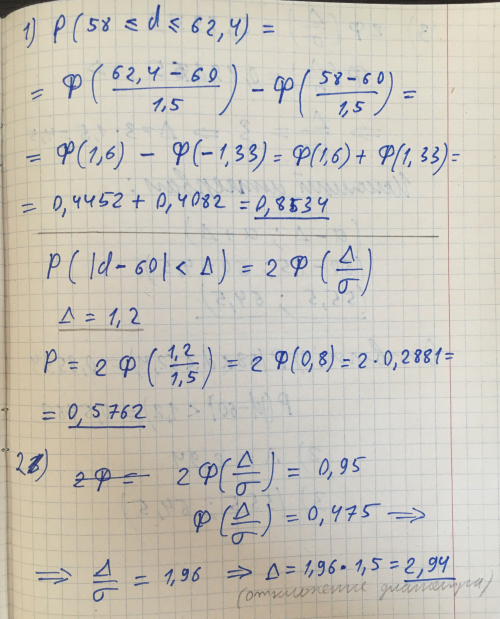 1) P(58 ≤ d ≤ 62,4) =
= Ф((62,4 - 60)/1,5) - Ф((58-60)/1,5) =
= Ф(1,6) - Ф(-1,33) = Ф(1,6) + Ф(1,33) =
= 0,4452 + 0,4082 = 0,8534
P(|d-60| < Δ) = 2 Ф(Δ/σ)
Δ = 1,2
P = 2 Ф(1,2/1,5) = 2 Ф(0,8) = 2·0,2881 =
= 0,5762
2) 2Ф = 2Ф(Δ/σ) = 0,95
Ф(Δ/σ) = 0,475 ⇒
⇒ Δ/σ = 1,96 ⇒ Δ = 1,96·1,5 = 2,94
(отклонение диаметра)